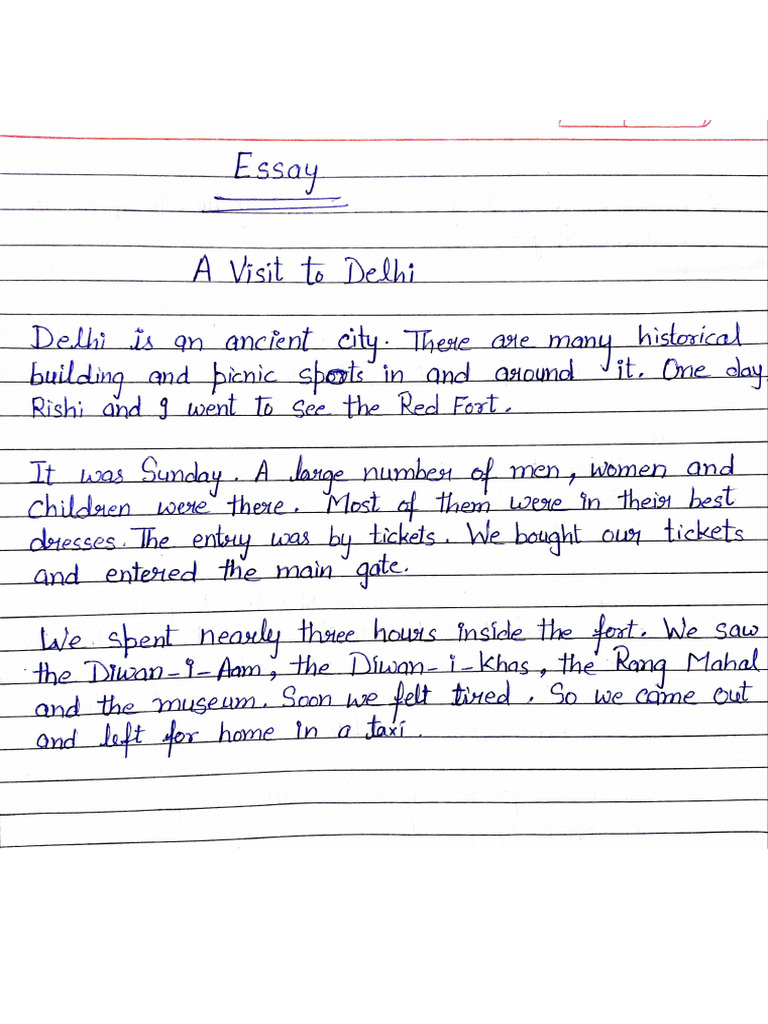 Essay
A Visit to Delhi
Delhi is an ancient city. There are many historical
building and picnic spots in and around it. One day
Rishi and I went to see the Red Fort.
It was Sunday. A large number of men, women and
children were there. Most of them were in their best
dresses. The entry was by tickets. We bought our tickets
and entered the main gate.
We spent nearly three hours inside the fort. We saw
the Diwan-i-Aam, the Diwan-i-Khas, the Rang Mahal
and the museum. Soon we felt tired. So we came out
and left for home in a taxi.